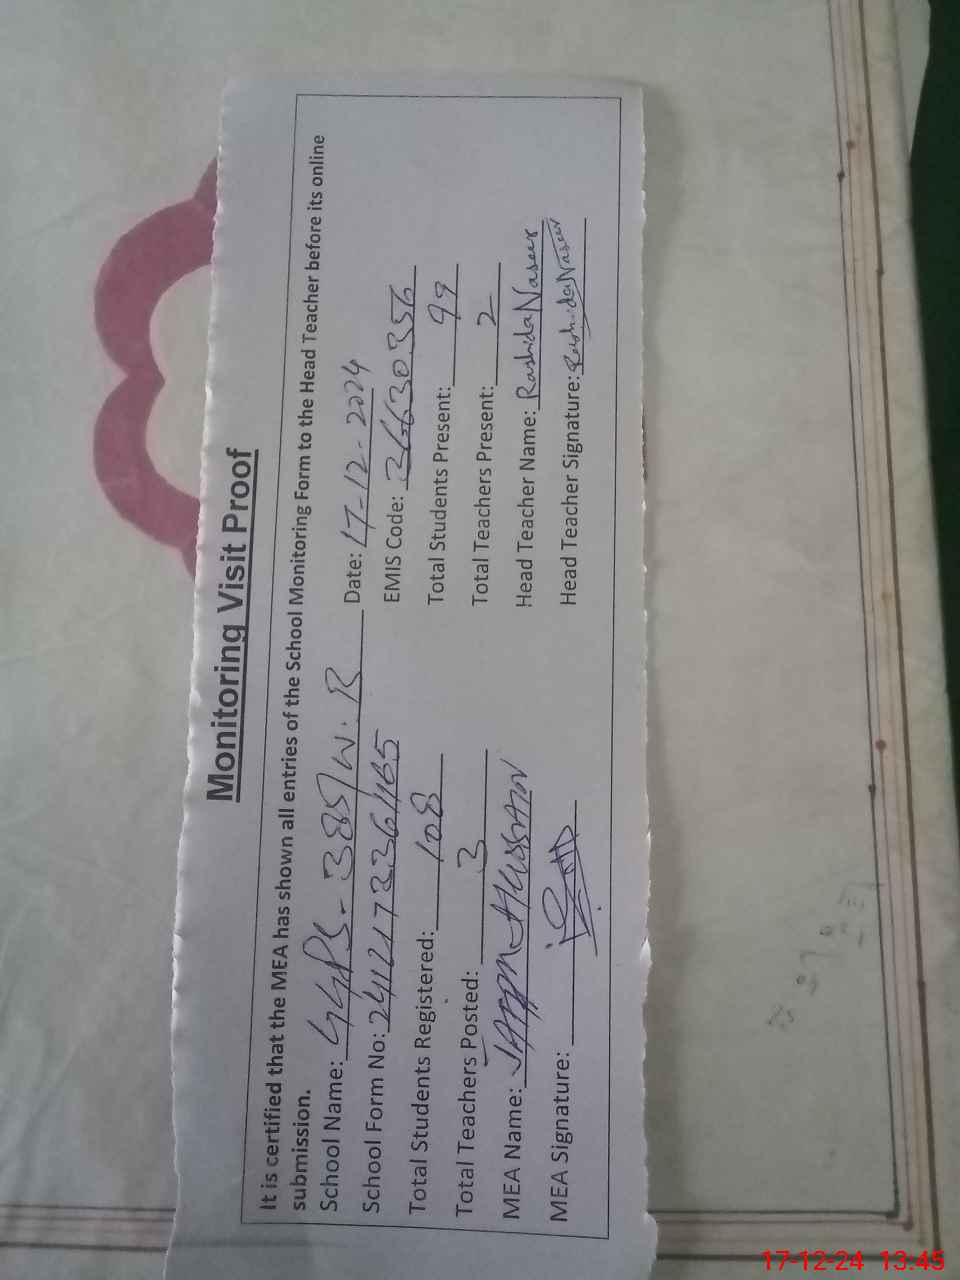 Monitoring Visit Proof
It is certified that the MEA has shown all entries of the School Monitoring Form to the Head Teacher before its online
submission.
School Name: GGPS - 385/W.B Date: 17-12-2024
School Form No: EMIS Code: 36630356
Total Students Registered: 108 Total Students Present: 99
Total Teachers Posted: 3 Total Teachers Present: 2
MEA Name: HUSSAIN Head Teacher Name: Rashida Naseer
MEA Signature: Head Teacher Signature: Rashida Naseer
17-12-24 13:45